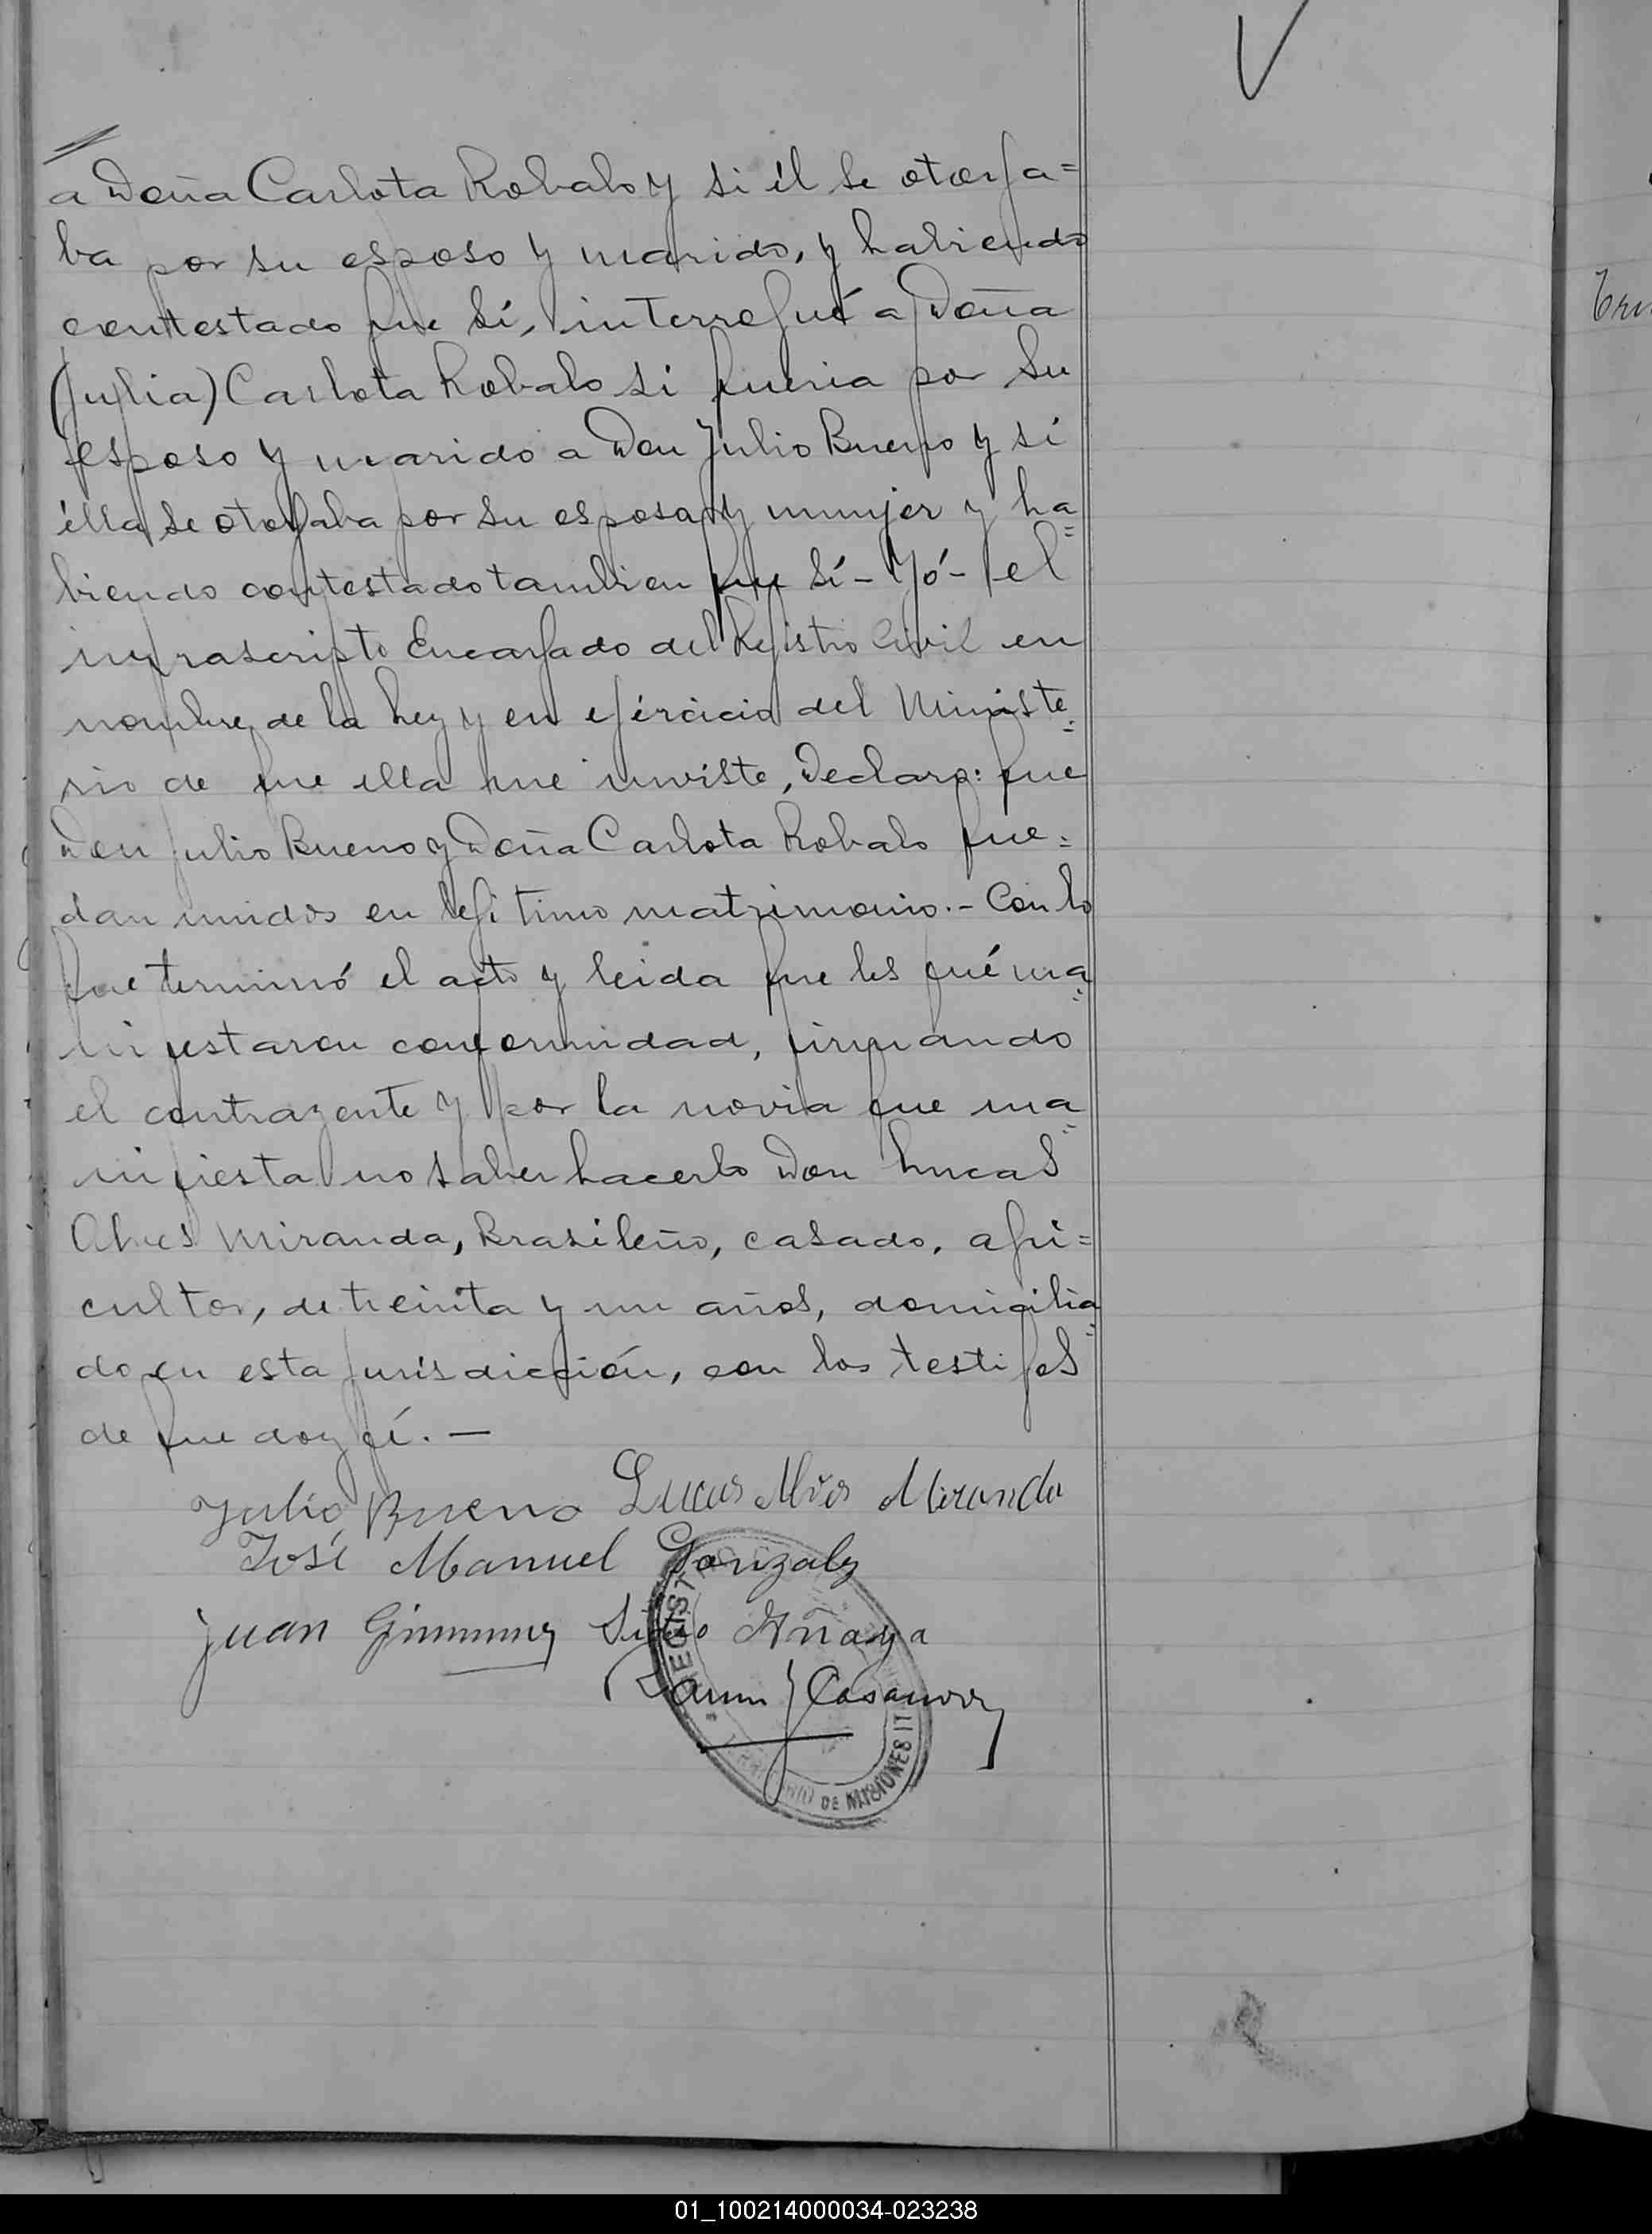 a Doña Carlota Robalo y si él se otorga=
ba por su esposo y marido, y habiendo
contestado que sí, interrogué a Doña
(Julia) Carlota Robalo si queria por su
esposo y marido a Don Julio Bueno y si
élla se otorgaba por su esposa y mujer y ha=
biendo contestado tambien que sí - Yó - el
infrascripto Encargado del Registro Civil en
nombre de la Ley y en ejércicio del Ministe=
rio de que ella me inviste, Declaro: que
Don Julio Bueno y Doña Carlota Robalo que=
dan unidos en legitimo matrimonio. - Con lo
que terminó el acto y leida que les fué ma=
nifestaron conformidad, firmando
el contrayente y por la novia que ma=
nifiesta no saber hacerlo Don Lucas
Alves Miranda, Brasileño, casado, agri=
cultor, de treinta y un años, domicilia=
do en esta jurisdicción, con los testigos
de que doy fé. —
Julio Bueno Lucas Alves Miranda
José Manuel Gonzalez
Juan Gimenez Sixto Añaya
Casanova
REGIST
DE MISIONES
01_100214000034-023238